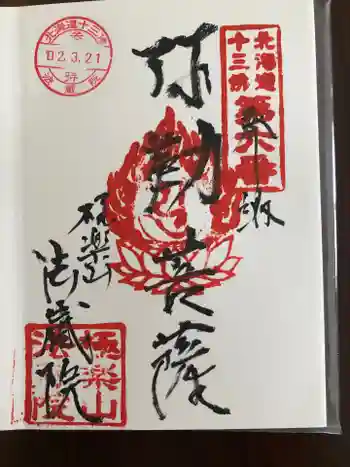 北海道
十三佛
第六番
奉納
弥勒菩薩
極楽山
法蔵院
北海道十三佛
02.3.21
法蔵院
極楽山
法蔵院